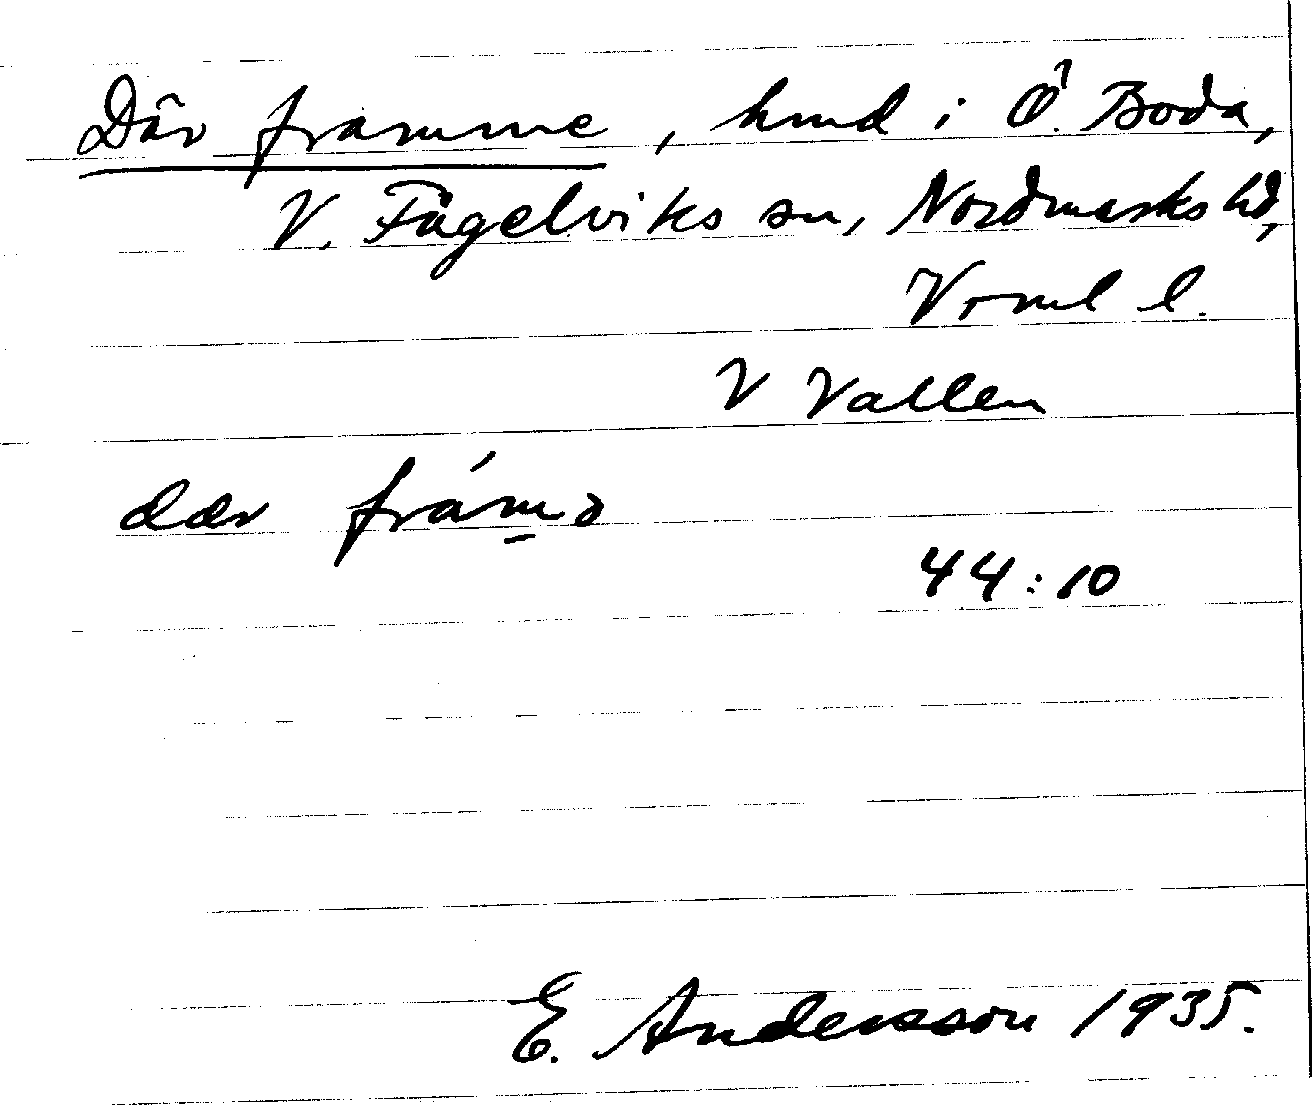 Där framme, hmd i Ö. Boda,
V. Fågelviks sn, Nordmarks hd,
Vrml l.
V Vallen
dær frámə
44:10
E. Andersson 1935.